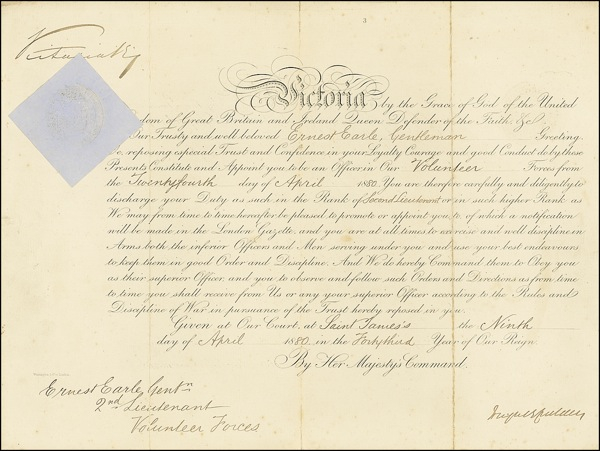 3
Victoria R
Victoria by the Grace of God of the United
dom of Great Britain and Ireland Queen Defender of the Faith, &c
Our Trusty and well beloved Ernest Earle, Gentleman Greeting
reposing especial Trust and Confidence in your Loyalty Courage and good Conduct do by these
Presents Constitute and Appoint you to be an Officer in Our Volunteer Forces from
the Twentyfourth day of April 1880. You are therefore carefully and diligently to
discharge your Duty as such in the Rank of Second Lieutenant or in such higher Rank as
We may from time to time hereafter be pleased to promote or appoint you to of which a notification
will be made in the London Gazette, and you are at all times to exercise and well discipline in
Arms both the inferior Officers and Men serving under you and use your best endeavours
to keep them in good Order and Discipline. And We do hereby Command them to Obey you
as their superior Officer, and you to observe and follow such Orders and Directions as from time
to time you shall receive from Us or any your superior Officer according to the Rules and
Discipline of War in pursuance of the Trust hereby reposed in you.
Given at Our Court, at Saint James's the Ninth
day of April 1880 in the Fortythird Year of Our Reign
By Her Majesty's Command.
Ernest Earle, Gentn
2nd Lieutenant
Volunteer Forces